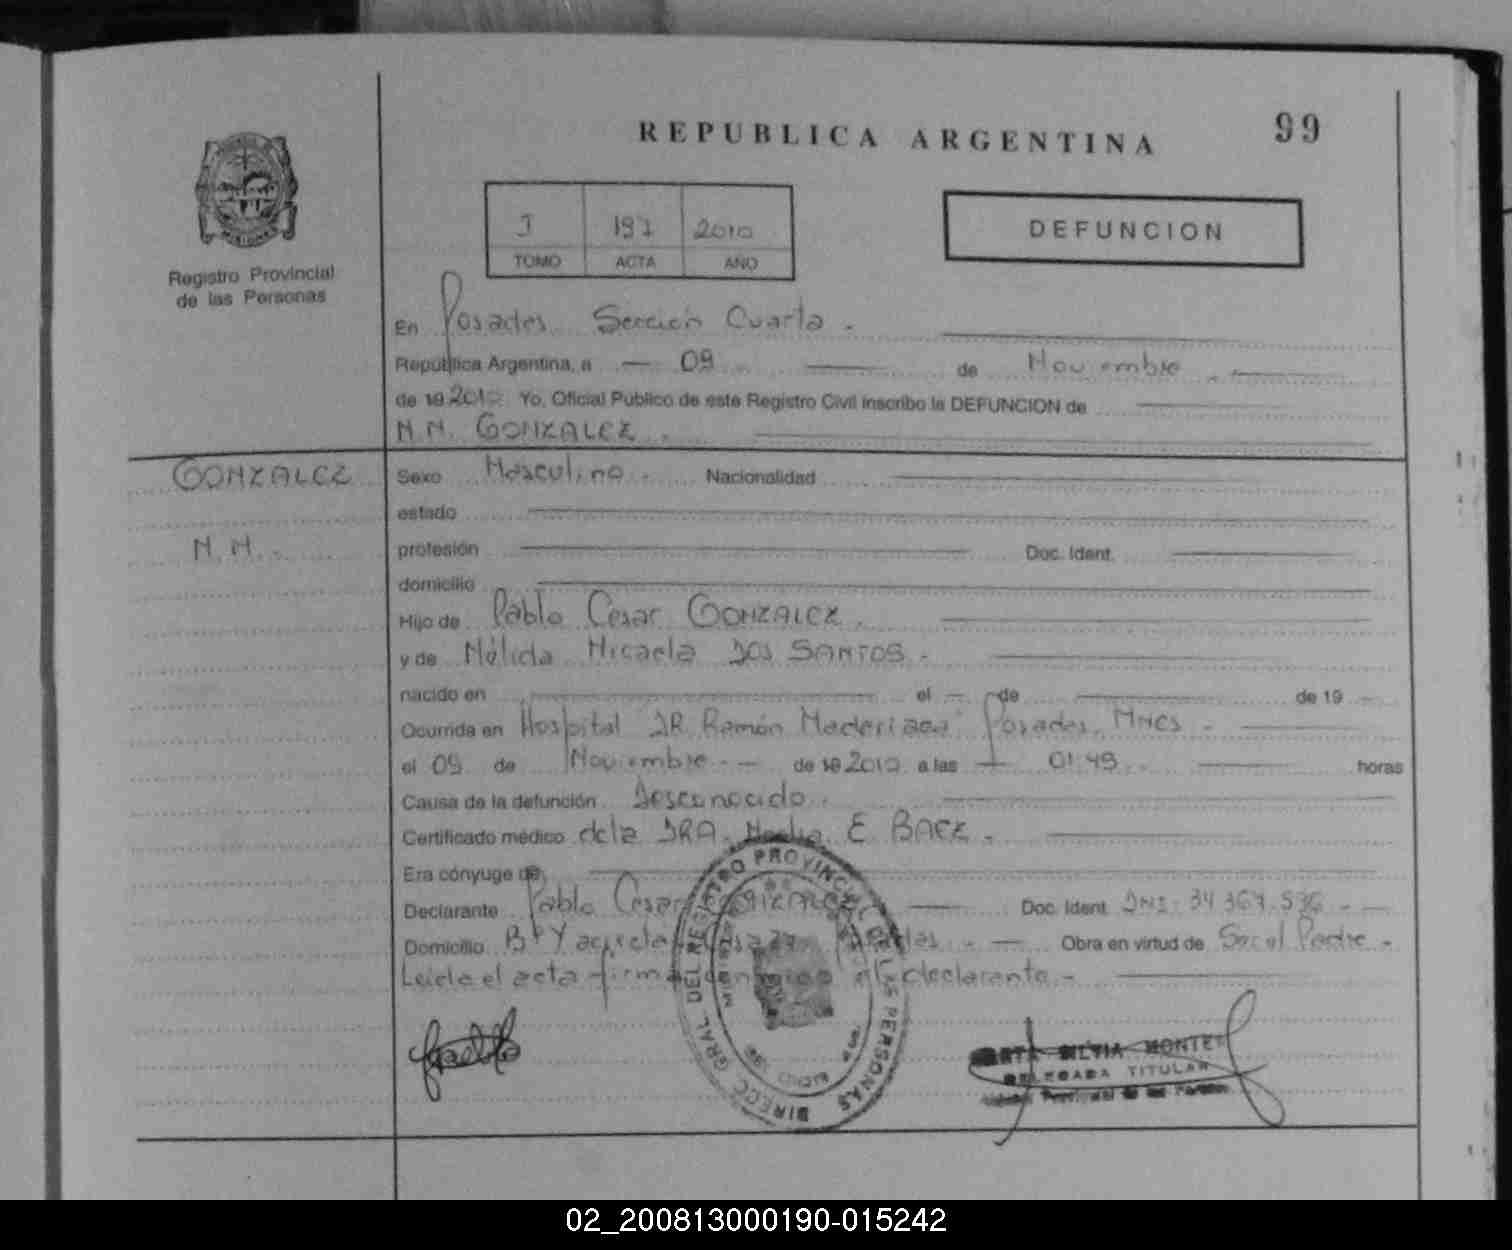 REPUBLICA ARGENTINA
99
Registro Provincial
de las Personas
2010
TOMO ACTA AÑO
DEFUNCION
En Posadas Sección Cuarta.
República Argentina, a — 09 — de Noviembre —
de 19 2010 Yo, Oficial Público de este Registro Civil inscribo la DEFUNCION de
N.N. GONZALEZ.
GONZALEZ
N.N.
Sexo Masculino. Nacionalidad
estado
profesión Doc. Ident.
domicilio
Hijo de Pablo Cesar GONZALEZ.
y de Nélida Micaela DOS SANTOS.
nacido en el — de de 19
Ocurrida en Hospital DR. Ramón Madariaga Posadas, Mnes.
el 09 de Noviembre de 19 2010 a las 01:45 horas
Causa de la defunción Desconocido.
Certificado médico de la DRA. E. BAEZ.
Era cónyuge de
Declarante Pablo Cesar GONZALEZ Doc. Ident. DNI: 34.367.536
Domicilio Bº Posadas. Obra en virtud de Ser el Padre.
Leída el acta firma conmigo el declarante.
DIRECC. GRAL. DEL REGISTRO PROVINCIAL DE LAS PERSONAS
SILVIA MONTE
DELEGADA TITULAR
02_200813000190-015242